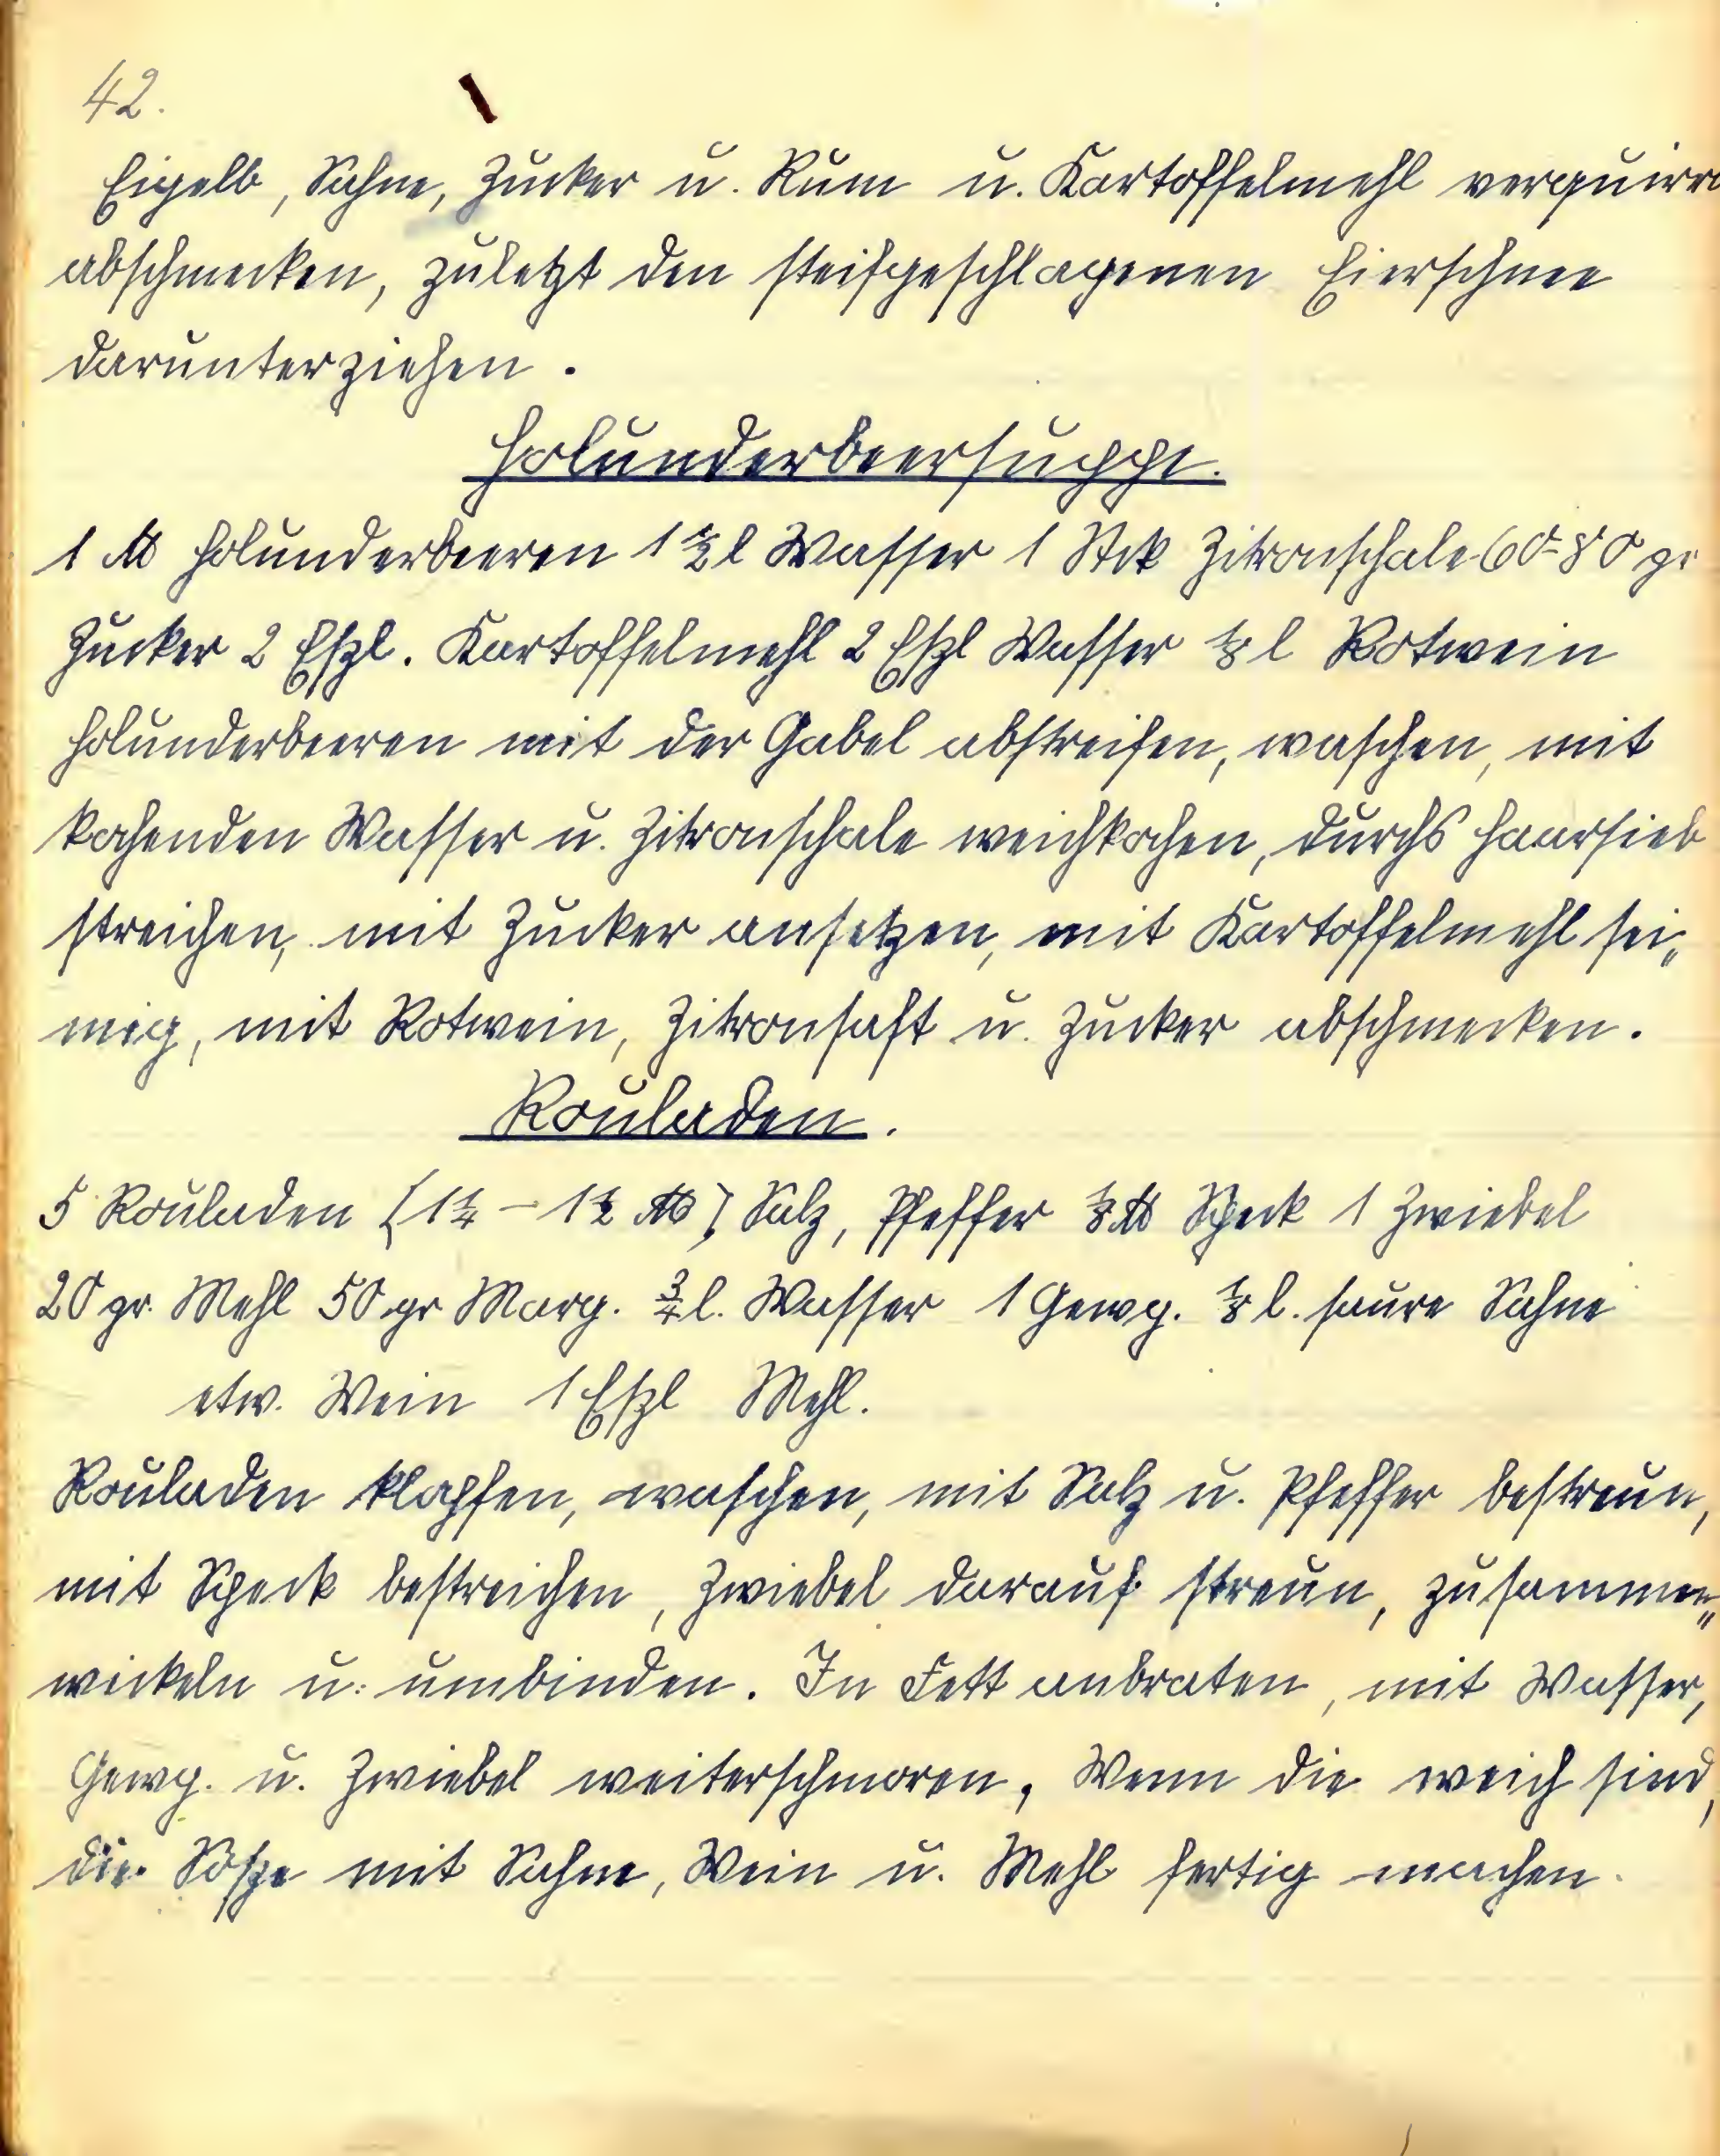 42.
Eigelb, Sahne, Zucker u. Rum u. Kartoffelmehl verquirr
abschmecken, zuletzt den steifgeschlagenen Eierschnee
darunterziehen.
Holunderbeersuppe.
1 ℔ Holunderbeeren 1 1/2 l Wasser 1 Stck Zitronschale 60-80 gr
Zucker 2 Eßl. Kartoffelmehl 2 Eßl Wasser 1/8 l Rotwein
Holunderbeeren mit der Gabel abstreifen, waschen, mit
kochenden Wasser u. Zitronschale weichkochen, durchs Haarsieb
streichen, mit Zucker ansetzen, mit Kartoffelmehl sei„
mig, mit Rotwein, Zitronsaft u. Zucker abschmecken.
Rouladen.
5 Rouladen (1 1/4 - 1 1/2 ℔) Salz, Pfeffer 1/8 ℔ Speck 1 Zwiebel
20 gr. Mehl 50 gr Marg. 3/4 l. Wasser 1 Gewg. 1/8 l. saure Sahne
etw. Wein 1 Eßl Mehl.
Rouladen klopfen, waschen, mit Salz u. Pfeffer bestreun,
mit Speck bestreichen, Zwiebel darauf streun, zusammen„
wickeln u. umbinden. In Fett anbraten, mit Wasser,
Gewg. u. Zwiebel weiterschmoren, Wenn die weich sind,
die Soße mit Sahne, Wein u. Mehl fertig machen.